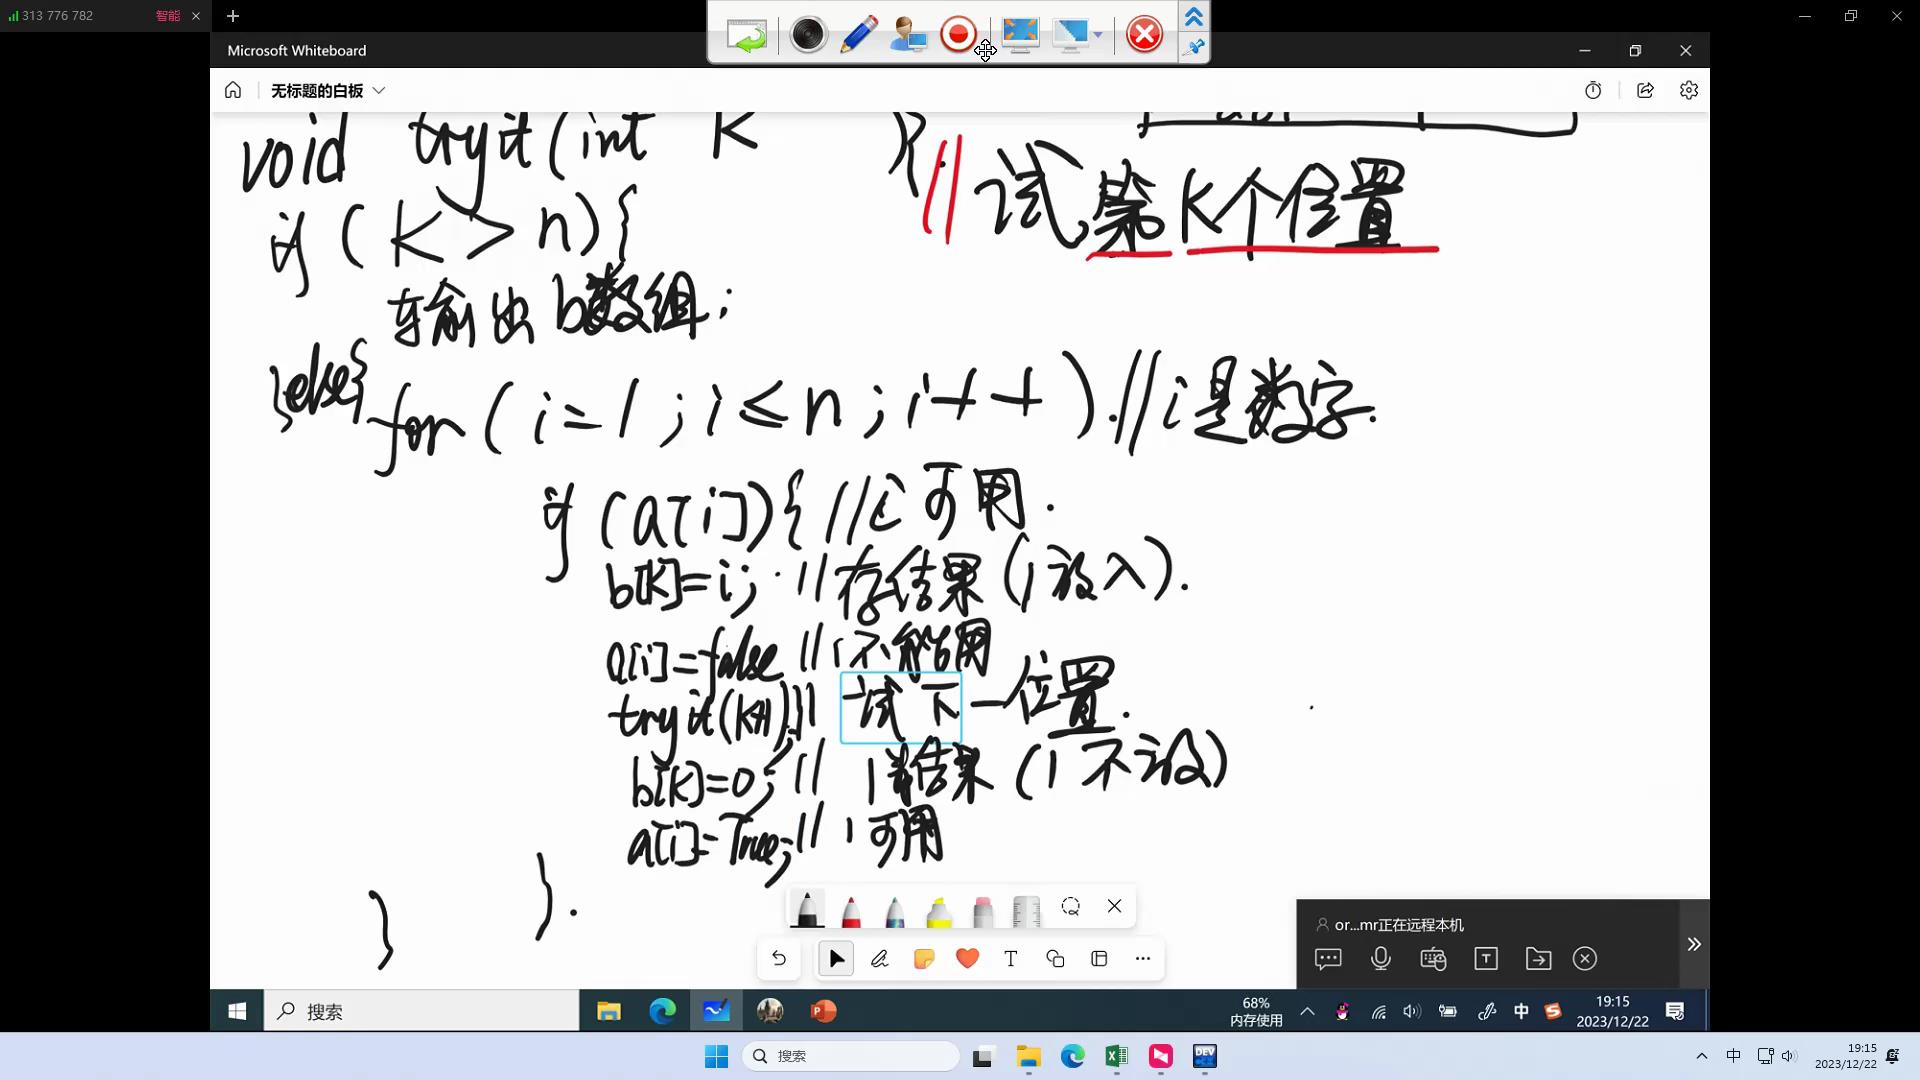 313 776 782 智能
Microsoft Whiteboard
无标题的白板
void tryit(int K ){ // 试第K个位置
if(K>n){
输出b数组;
}else{
for(i=1;i≤n;i++).//i是数字.
if(a[i]){//i可用.
b[K]=i;//存结果(i放入).
a[i]=false //i不能用
tryit(K+1);// 试下一位置.
b[K]=0;// 结果(i不设)
a[i]=True;//i可用
}.
}
or...mr正在远程本机
搜索
68%
内存使用
中
19:15
2023/12/22
搜索
DEV
中
19:15
2023/12/22